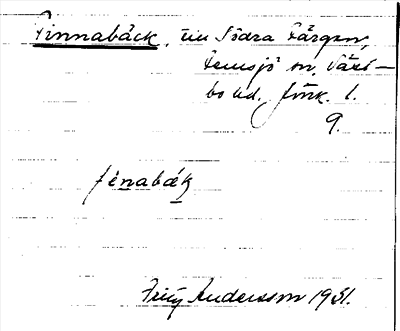 Finnabäck, vid Södra Färgen,
Femsjö sn, Väst-
bo hd. Jönk. l.
9.
fenabäk
Fritz Andersson 1951.